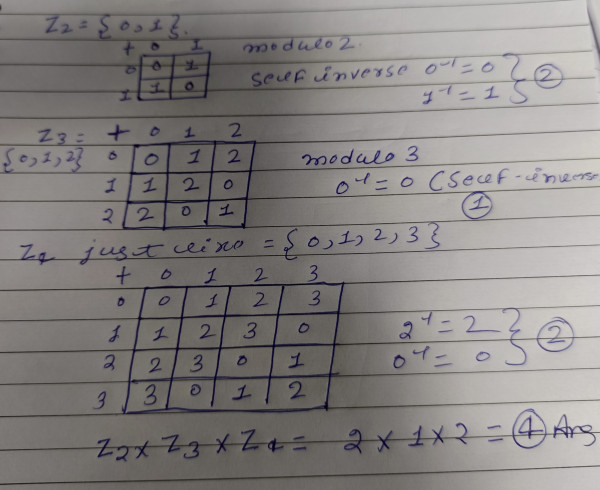 Z2 = {0,1}.
+ 0 1 modulo 2.
0 0 1 self inverse 0⁻¹ = 0
1 1 0 1⁻¹ = 1 } ②
Z3 = + 0 1 2
{0,1,2} 0 0 1 2 modulo 3
1 1 2 0 0⁻¹ = 0 (Self-inverse
2 2 0 1 ①
Z4 just = {0,1,2,3}
+ 0 1 2 3
0 0 1 2 3
1 1 2 3 0 2⁻¹ = 2
2 2 3 0 1 0⁻¹ = 0 } ②
3 3 0 1 2
Z2 x Z3 x Z4 = 2 x 1 x 2 = ④ Ans